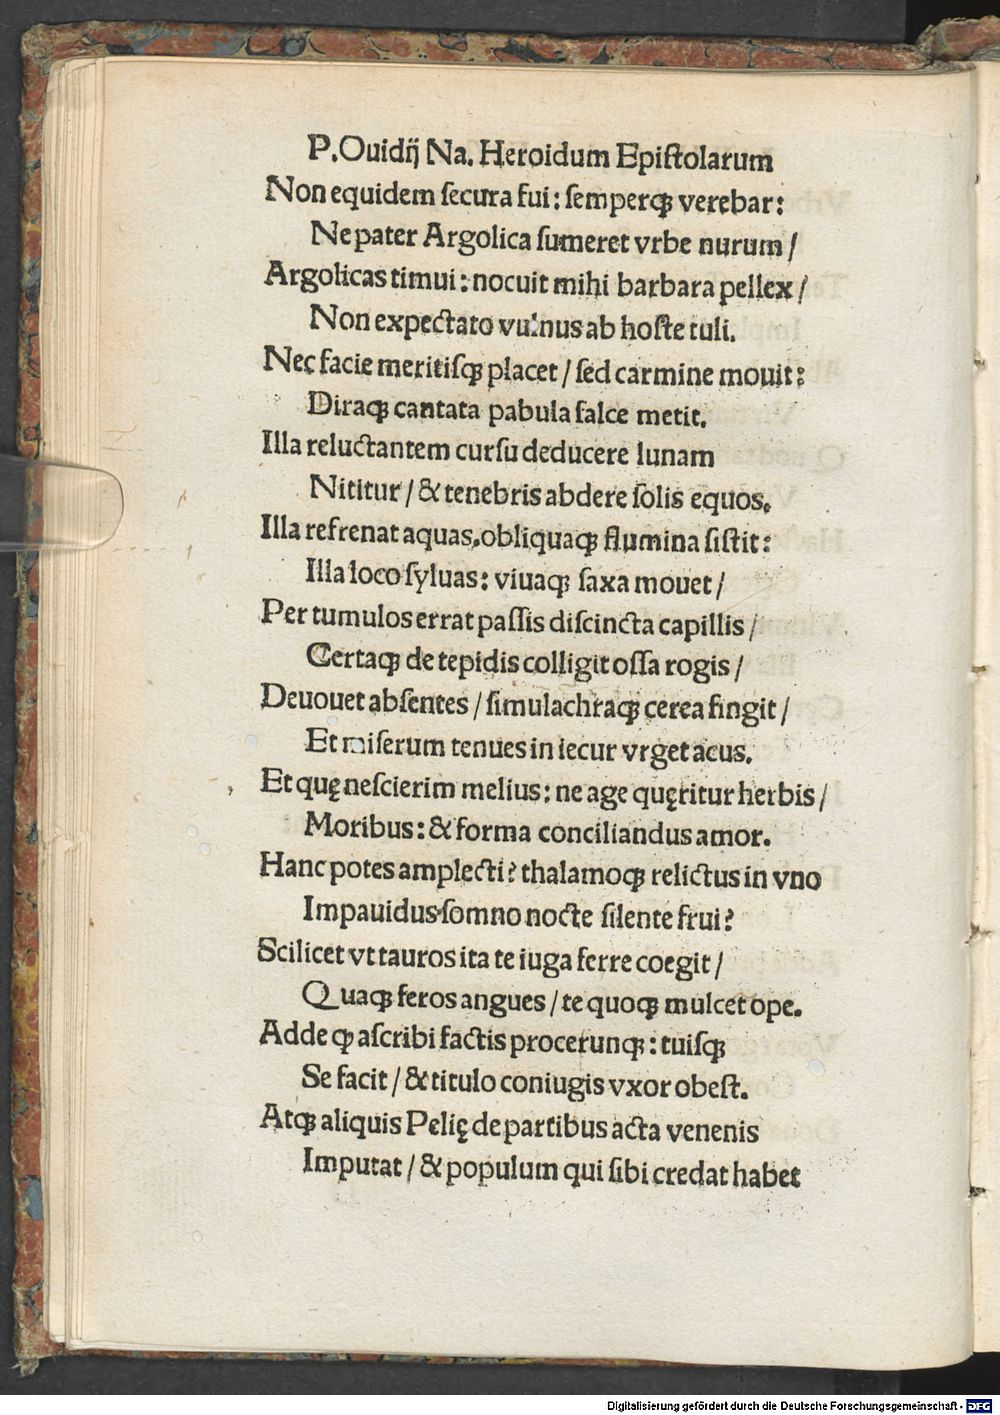 P. Ouidij Na. Heroidum Epiſtolarum
Non equidem ſecura fui: ſemperqꝫ verebar:
Ne pater Argolica ſumeret vrbe nurum /
Argolicas timui: nocuit mihi barbara pellex /
Non expectato vulnus ab hoſte tuli.
Nec facie meritiſqꝫ placet / ſed carmine mouit:
Diraqꝫ cantata pabula falce metit.
Illa reluctantem curſu deducere lunam
Nititur / & tenebris abdere ſolis equos.
Illa refrenat aquas, obliquaqꝫ flumina ſiſtit:
Illa loco ſyluas: viuaqꝫ ſaxa mouet /
Per tumulos errat paſſis diſcincta capillis /
Certaqꝫ de tepidis colligit oſſa rogis /
Deuouet abſentes / ſimulachraqꝫ cerea fingit /
Et miſerum tenues in iecur vrget acus.
Et quę neſcierim melius: ne age quęritur herbis /
Moribus: & forma conciliandus amor.
Hanc potes amplecti? thalamoqꝫ relictus in vno
Impauidus ſomno nocte ſilente frui?
Scilicet vt tauros ita te iuga ferre coegit /
Quaqꝫ feros angues / te quoqꝫ mulcet ope.
Adde ꝙ aſcribi factis procerunqꝫ: tuiſqꝫ
Se facit / & titulo coniugis vxor obeſt.
Atqꝫ aliquis Pelię de partibus acta venenis
Imputat / & populum qui ſibi credat habet
Digitalisierung gefördert durch die Deutsche Forschungsgemeinschaft - DFG